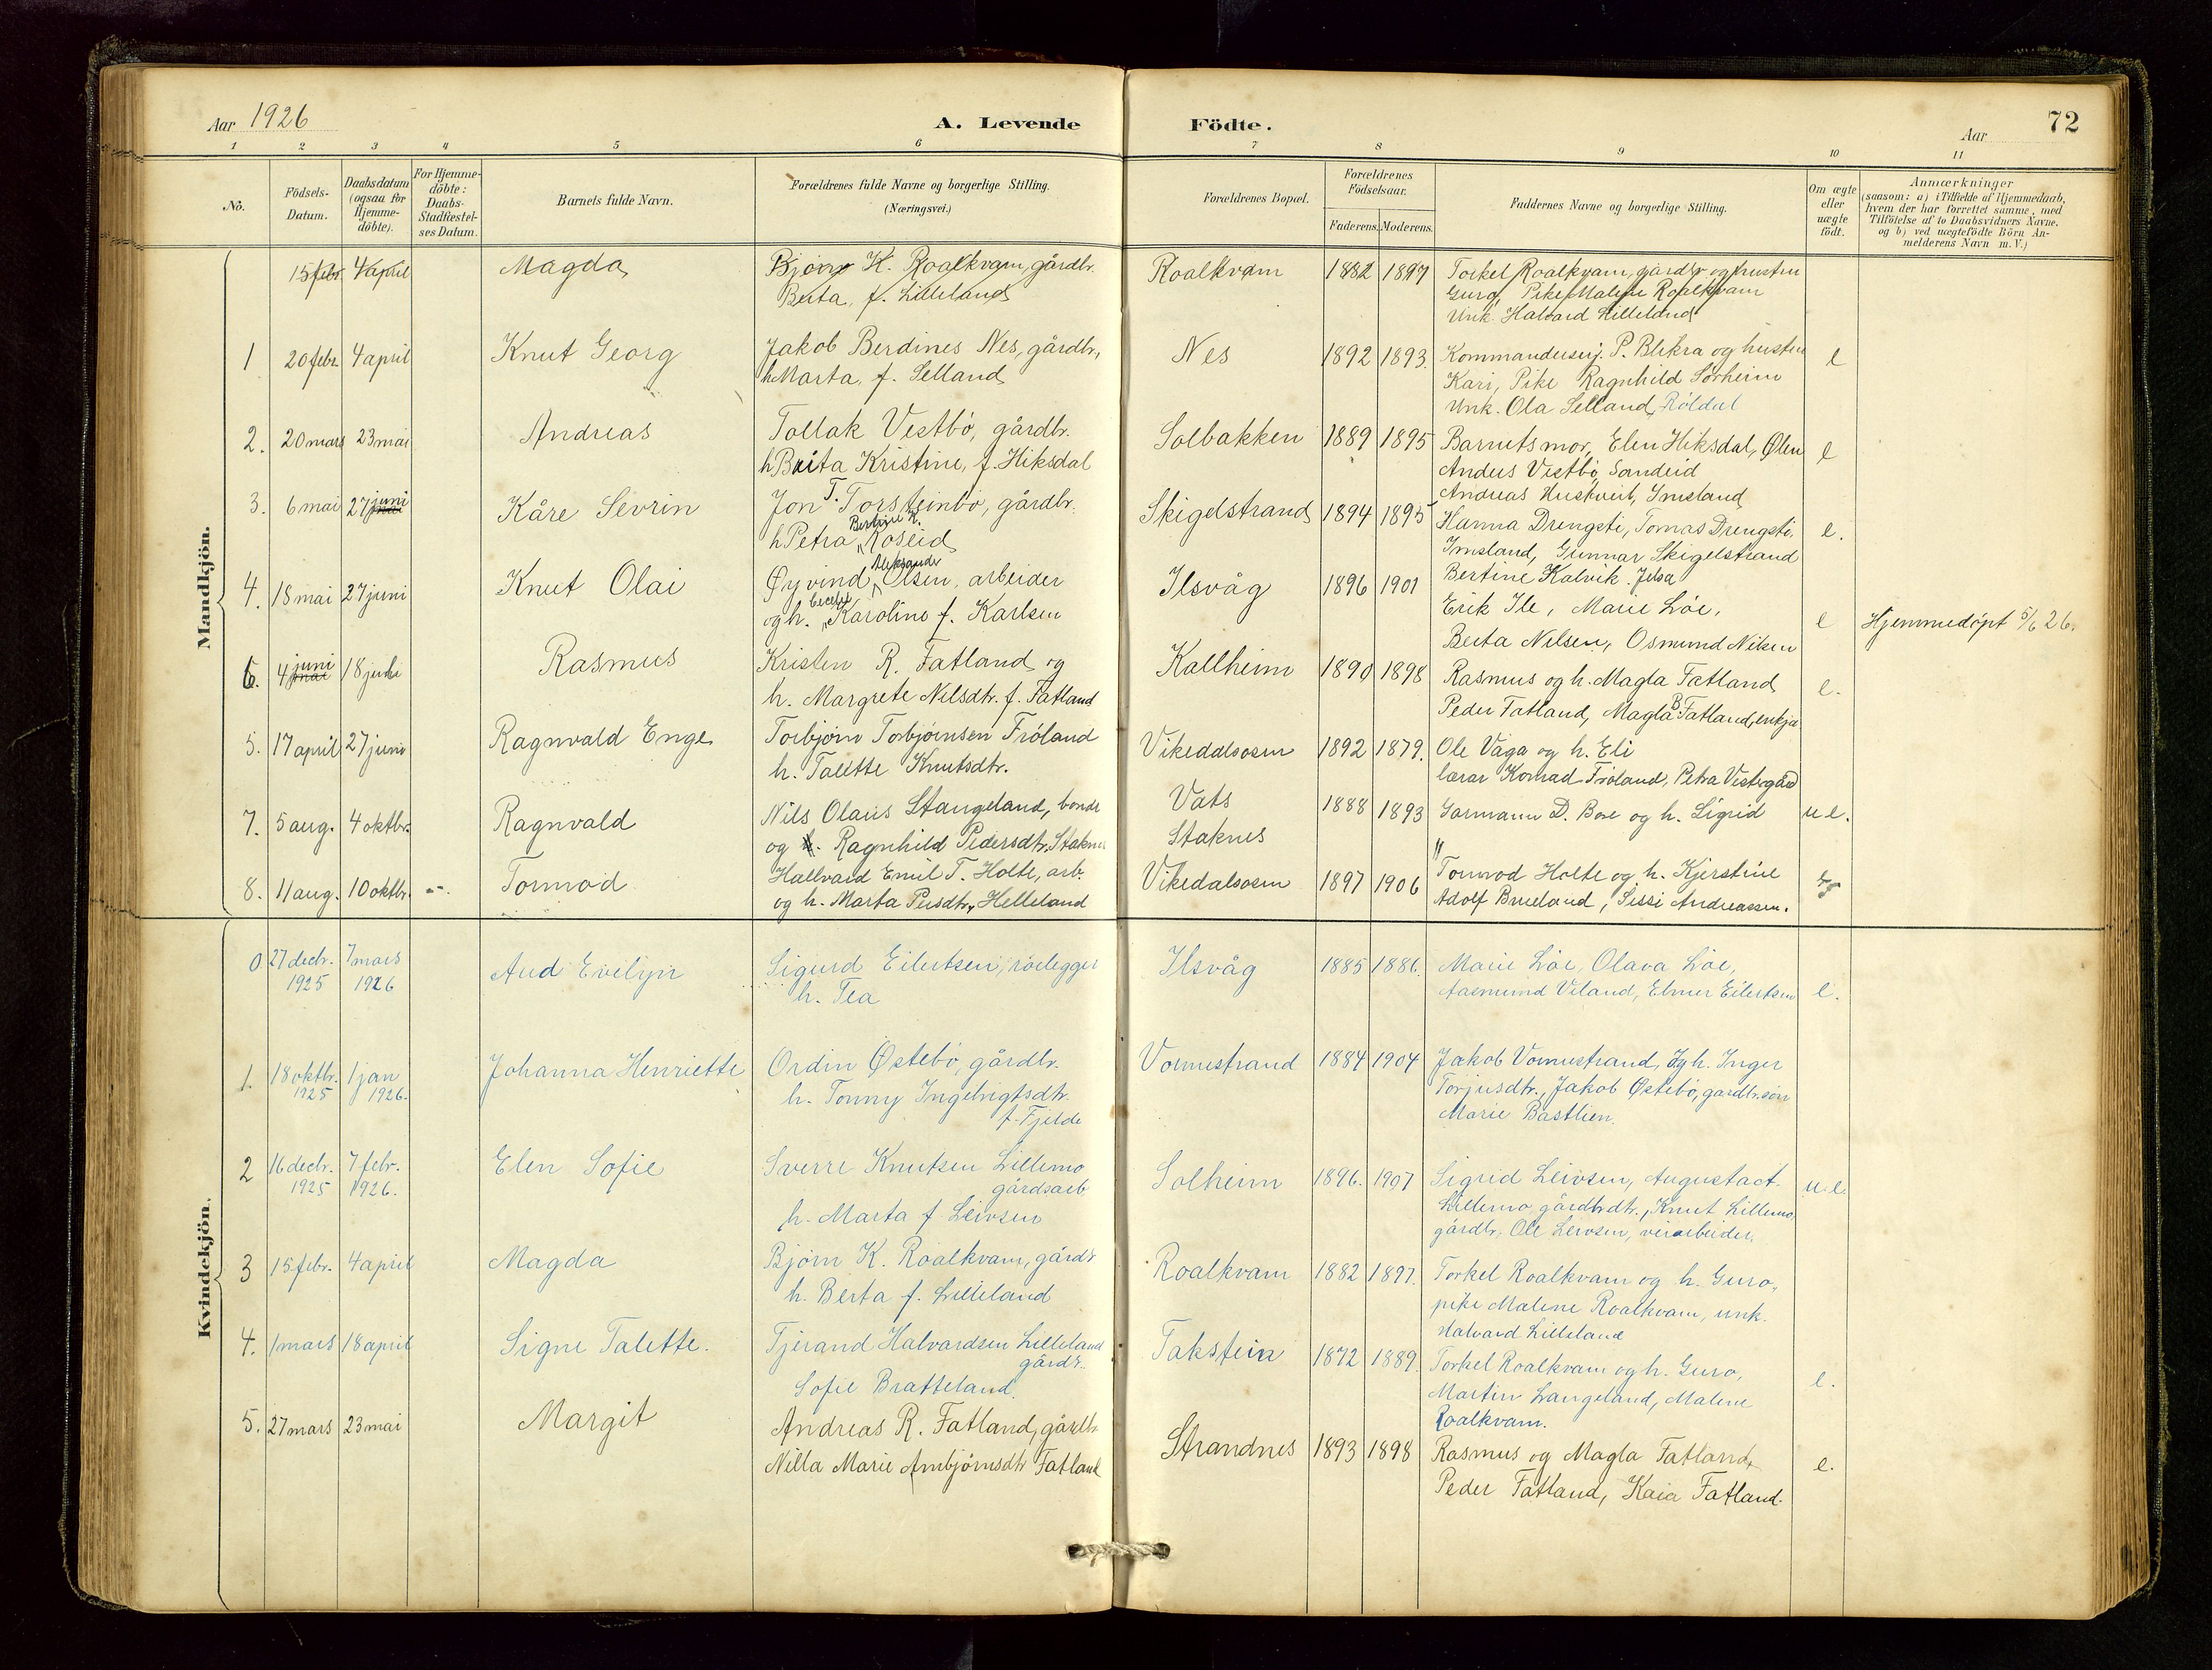 Aar 1926
A. Levende Födte.
Aar
72
1 2 3 4 5 6 7 8 9 10 11
No.
Födsels-Datum.
Daabsdatum (ogsaa for Hjemme-döbte).
For Hjemme-döbte: Daabs-Stadfæstel-ses Datum.
Barnets fulde Navn.
Forældrenes fulde Navne og borgerlige Stilling.
(Næringsvei.)
Forældrenes Bopæl.
Forældrenes Födselsaar.
Faderens. Moderens.
Faddernes Navne og borgerlige Stilling.
Om ægte eller uægte födt.
Anmærkninger
(saasom: a) i Tilfælde af Hjemmedaab, hvem der har forrettet samme, med Tilföielse af to Daabsvidners Navne, og b) ved uægtefödte Börn An-melderens Navn m. V.)
Mandkjön.
15 febr. 4 april Magda Bjørn K. Roalkvam, gårdbr. Roalkvam 1882 1897 Torkel Roalkvam, gårdbr. og hustru
Berta, f. Lilleland Guro, Pike Malene Roalkvam
Unk. Halvard Lilleland
1 20 febr. 4 april Knut Georg Jakob Berdines Nes, gårdbr., Nes 1892 1893. Kommandersgj. P. Blikra og hustru e
h Marta, f. Selland Kari, Pike Ragnhild Sørheim
Unk. Ola Selland, Røldal
2. 20 mars 23 mai Andreas Tollak Vestbø, gårdbr. Solbakken 1889 1895 Barnets mor, Elen Hiksdal, Ølen e
h Brita Kristine, f. Hiksdal Anders Vestbø, Sandeid
Andreas Huskveit, Imsland
3. 6 mai 27 juni Kåre Sevrin Jon T. Torsteinbø, gårdbr. Skigelstrand 1894 1895 Hanna Drengsti, Tomas Drengsti, e.
h Petra Bertine K. Roseid Imsland, Gunnar Skigelstrand
Bertine Kalvik. Jelsa
4. 18 mai 27 juni Knut Olai Øyvind Aleksander Olsen, arbeider Ilsvåg 1896 1901 Erik Ile, Marie Løe, e Hjemmedøpt 5/6 26.
og h. Karoline f. Karlsen Berta Nilsen, Osmund Nilsen
6. 4 juni 18 juli Rasmus Kristen R. Fatland og Kallheim 1890 1898 Rasmus og h. Magla Fatland e.
h. Margrete Nilsdtr. f. Fatland Peder Fatland, Magla B. Fatland, enkja
5. 17 april 27 juni Ragnvald Enge Torbjørn Torbjørnsen Frøland Vikedalsosen 1892 1879. Ole Våga og h. Eli
h. Talette Knutsdtr. lærar Konrad Frøland, Petra Vestergård
7. 5 aug. 4 oktbr. Ragnvald Nils Olaus Stangeland, bonde Vats 1888 1893 Garmann D. Bore og h. Sigrid u e.
og h. Ragnhild Pedersdtr. Staknes Staknes "
8. 11 aug. 10 oktbr. -.- Tormod Hallvard Emil T. Holte, arb. Vikedalsosen 1897 1906 Tormod Holte og h. Kjerstine
og h. Marta Persdtr. Helleland Adolf Brueland, Sissi Andreassen.
Kvindekjön.
0 27 decbr. 1925 7 mars 1926 Aud Evelyn Sigurd Eilertsen, rørlegger Ilsvåg 1885 1886. Marie Løe, Olava Løe,
h. Tea Aasmund Veland, Elmer Eilertsen e.
1. 18 oktbr. 1925 1 jan 1926. Johanna Henriette Ordin Østebø, gårdbr. Vormestrand 1884 1904 Jakob Vormestrand, og h. Inger
h. Tonny Ingebrigtsdtr. Torjusdtr., Jakob Østebø, gardbr.søn
f. Fjelde Marie Bastlien.
2 16 decbr. 1925 7 febr. 1926. Elen Sofie Sverre Knutsen Lillemo Solheim 1896. 1907 Sigrid Leivsen, Augusta A. u. e.
gårdsarb. Lillemo, gårdbrdtr., Knut Lillemo,
h. Marta f. Leivsen gårdbr, Ole Leivsen, veiarbeider.
3 15 febr. 4 april Magda Bjørn K. Roalkvam, gårdbr Roalkvam 1882 1897. Torkel Roalkvam og h. Guro,
h. Berta f. Lilleland pike Malene Roalkvam, unk.
Halvard Lilleland
4. 1 mars 18 april Signe Talette. Tjerand Halvardsen Lilleland Takstein 1872 1889. Torkel Roalkvam og h. Guro, e.
gårdbr. Martin Langeland, Malene
Sofie Bratteland. Roalkvam.
5. 27 mars 23 mai Margit Andreas R. Fatland, gårdbr Strandnes 1893 1898 Rasmus og Magla Fatland, e.
Nilla Marie Arnbjørnsdtr Fatland Peder Fatland, Kaia Fatland.